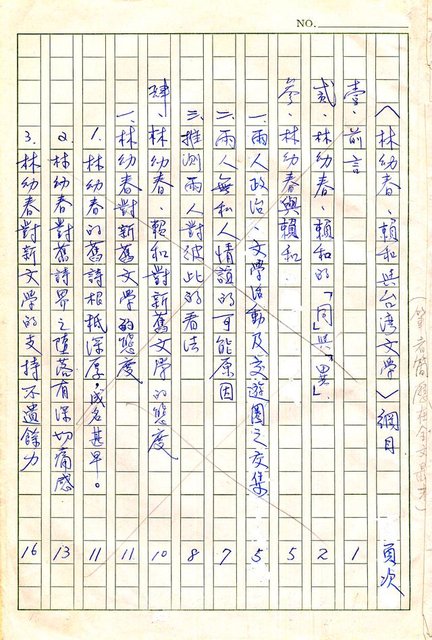 NO.
〈林幼春、賴和與台湾文學〉綱目 頁次
壹、前言 1
貳、林幼春、賴和的「同」與「異」 2
參、林幼春與賴和 5
一、兩人政治、文學活動及交遊圈之交集 5
二、兩人無私人情誼的可能原因 7
三、推測兩人對彼此的看法 8
肆、林幼春、賴和對新舊文學的態度 10
一、林幼春對新舊文學的態度 11
1. 林幼春的舊詩根柢深厚,成名甚早。 11
2. 林幼春對舊詩界之墮落有深切痛感 13
3. 林幼春對新文學的支持不遺餘力 16